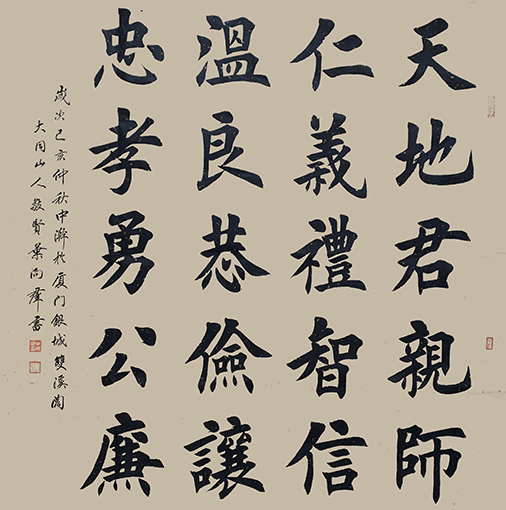 天地君親師
仁義禮智信
溫良恭儉讓
忠孝勇公廉
歲次己亥仲秋中澣於厦门銀城雙溪阁
大同山人敬賢葉向群書